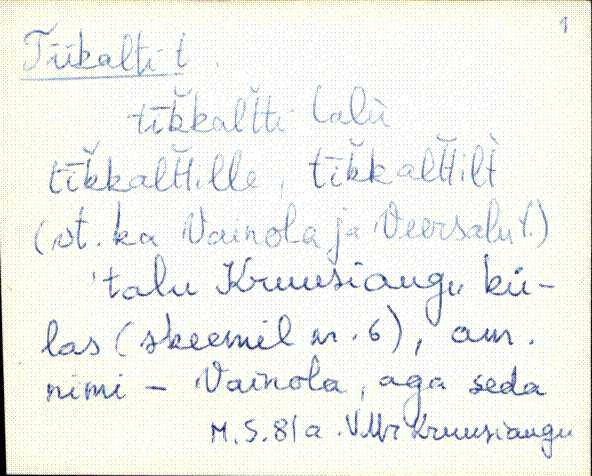 1
Tiikalti t.
tīk̆kalt̆ti talù
tīk̆kalt̆tille, tīk̆kalt̆tilt̀
(vt. ka Vainola ja Veersalu t.)
talu Kruusiaugu kü-
las (skeemil nr. 6), am.
nimi - Vainola, aga seda
M.S. 81 a. VMr Kruusiaugu